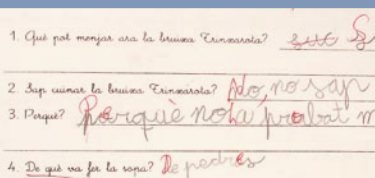 1. Què pot menjar ara la bruixa Trinxarota? suc S
2. Sap cuinar la bruixa Trinxarota? No, no sap
3. Perquè? Perquè no ha probat m
4. De què va fer la sopa? De pedres